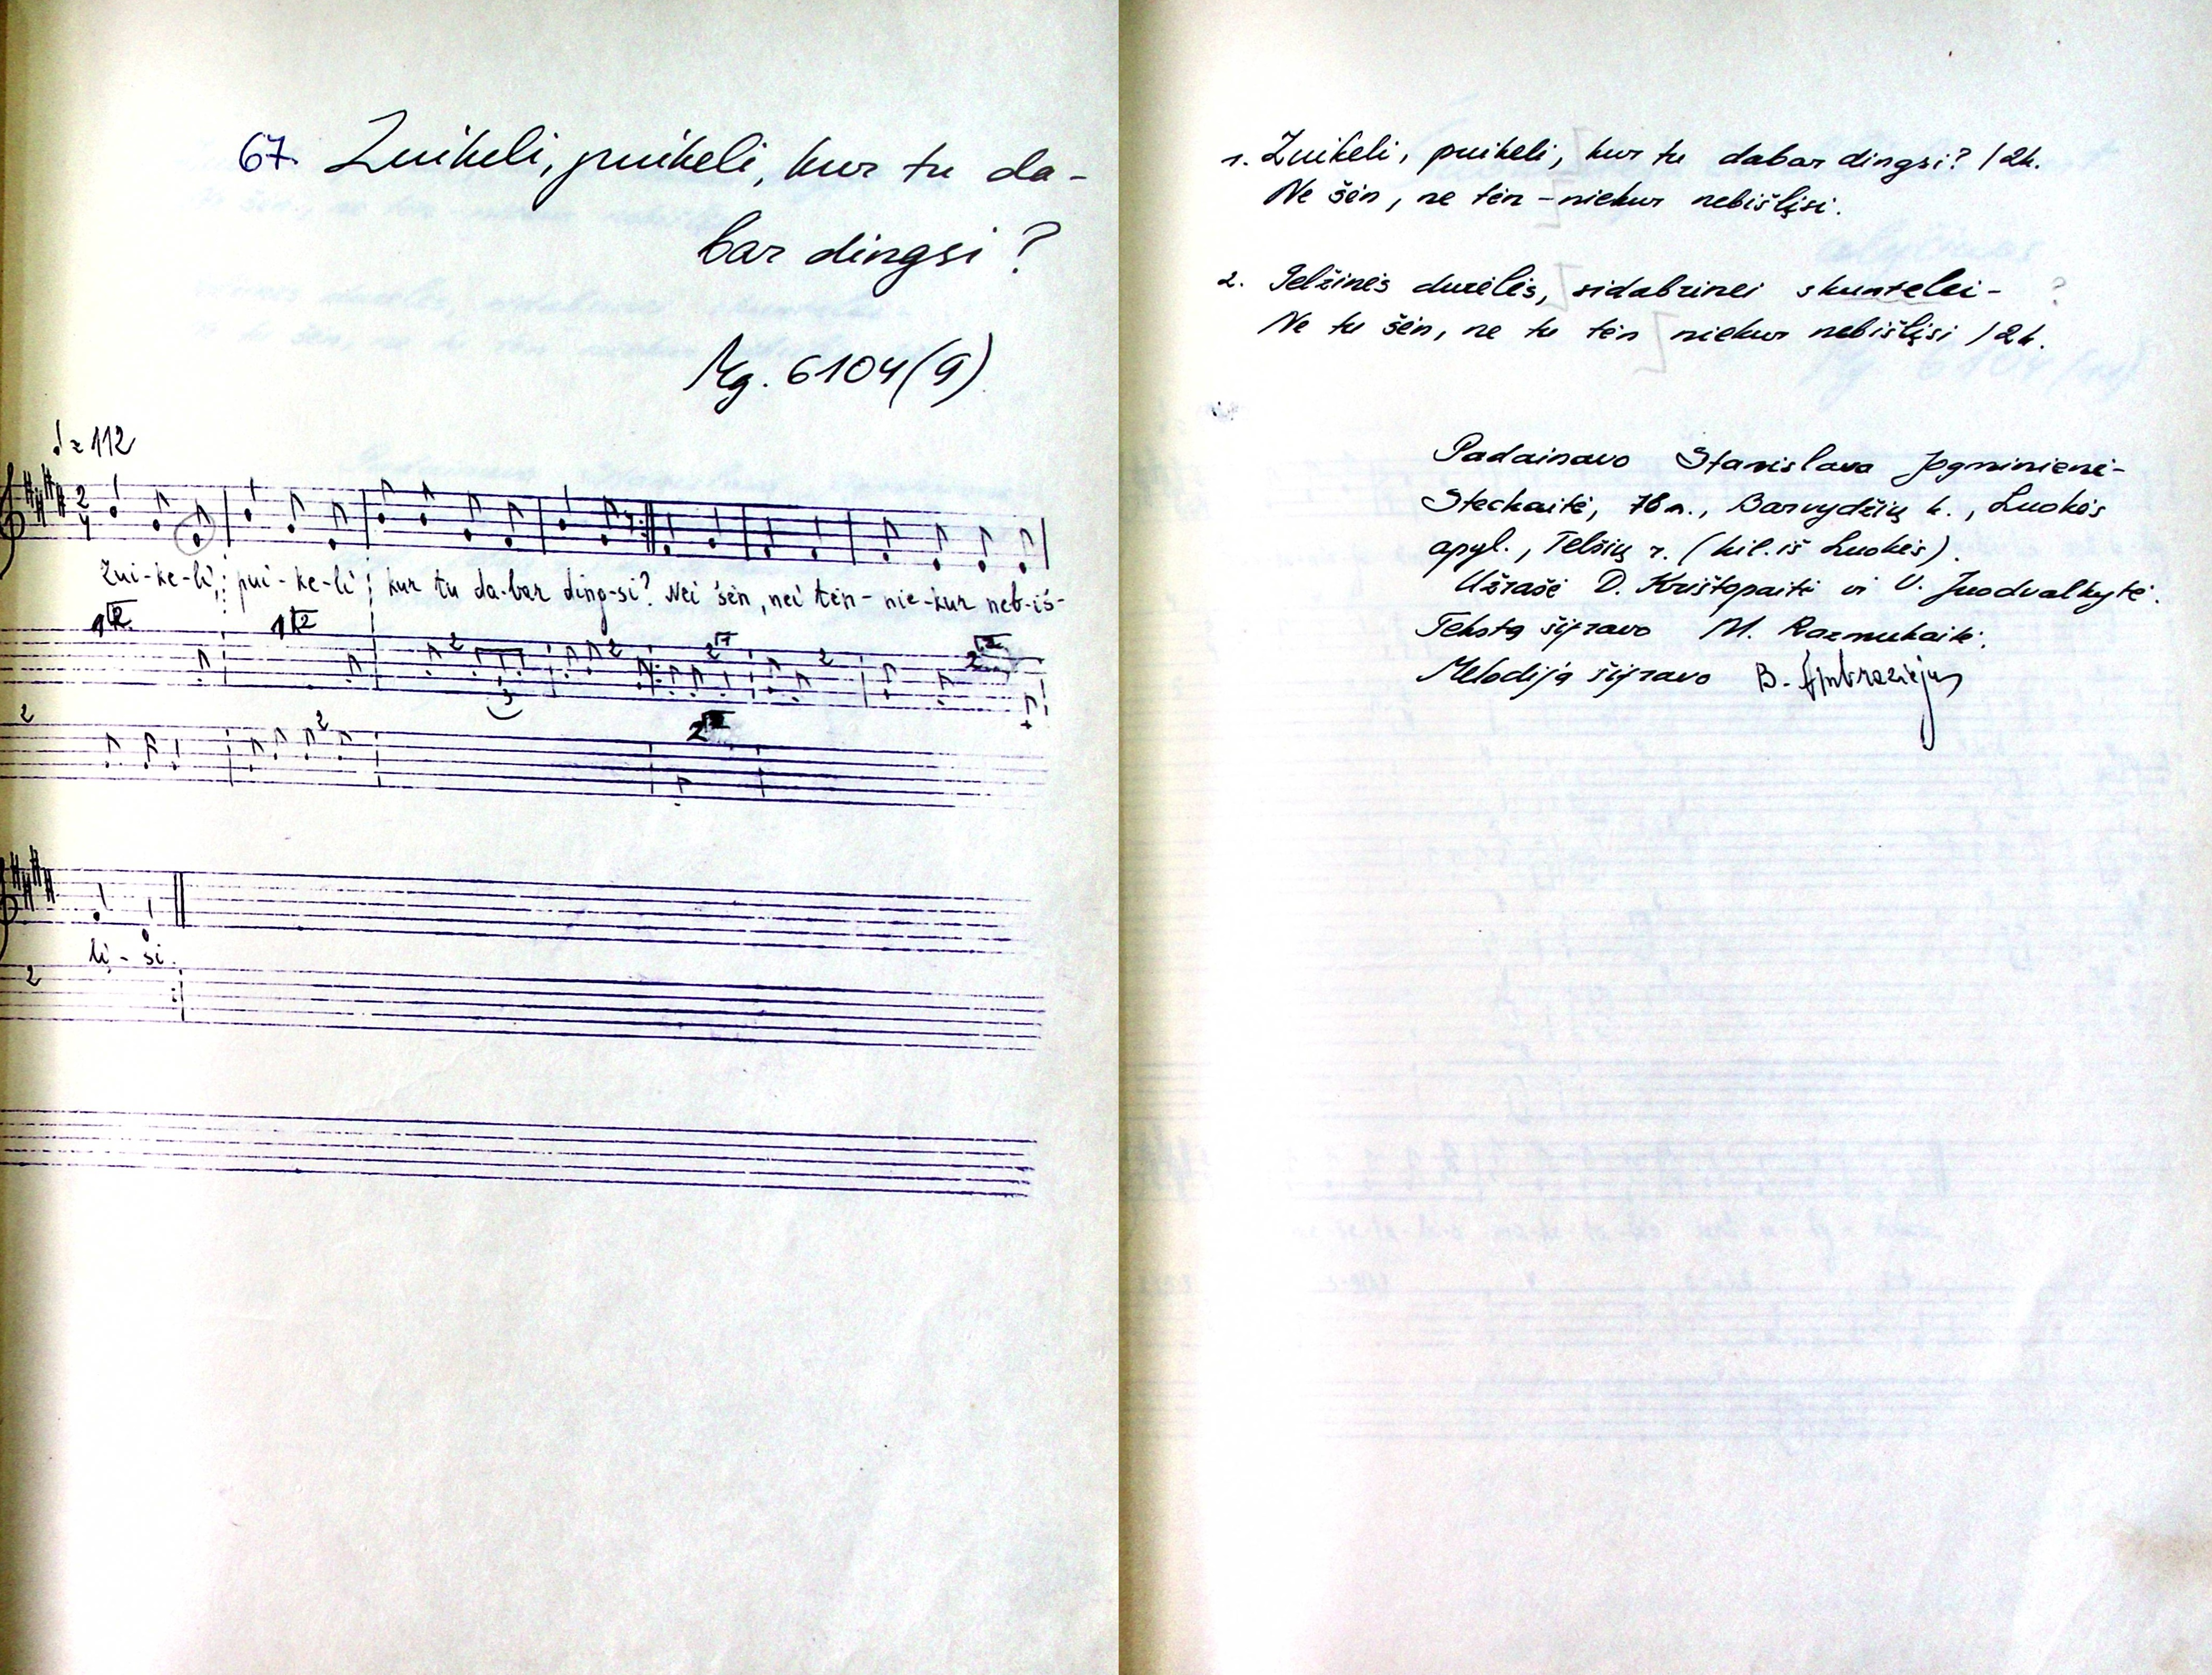 67. Zuikeli, puikeli, kur tu da-
bar dingsi?
Mg. 6104(9)
♩=112
2/4
Zui-ke-li, pui-ke-li, kur tu da-bar ding-si? Nei šėn, nei tėn- nie-kur neb-iš-
lį-si.
1. Zuikeli, puikeli, kur tu dabar dingsi? /2k.
Ne šėn, ne tėn - niekur nebišlįsi.
2. Gelžinės durelės, sidabrinei skuntelei- ?
Ne tu šėn, ne tu tėn niekur nebišlįsi /2k.
Padainavo Stanislava Jogminienė-
Stechaitė, 78 m., Barvydžių k., Luokės
apyl., Telšių r. (kil. iš Luokės).
Užrašė D. Krištopaitė ir V. Juodvalkytė.
Tekstą šifravo M. Razmukaitė.
Melodiją šifravo B. Ambraziejus